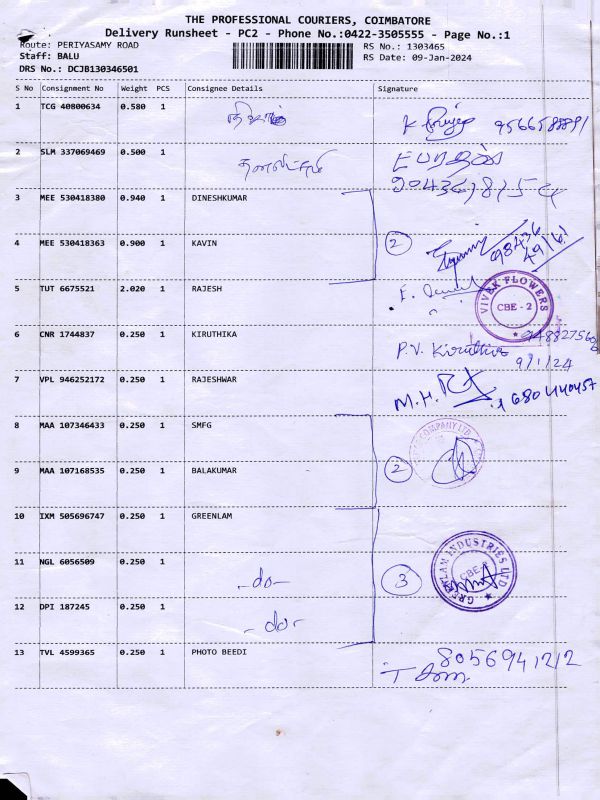 THE PROFESSIONAL COURIERS, COIMBATORE
Delivery Runsheet - PC2 - Phone No.:0422-3505555 - Page No.:1
Route: PERIYASAMY ROAD
RS No.: 1303465
Staff: BALU
RS Date: 09-Jan-2024
DRS No.: DCJB130346501
S No Consignment No Weight PCS Consignee Details Signature
1 TCG 40800634 0.580 1
9566588891
2 SLM 337069469 0.500 1
3 MEE 530418380 0.940 1 DINESHKUMAR
4 MEE 530418363 0.900 1 KAVIN 2 98436
49161
5 TUT 6675521 2.020 1 RAJESH
VIVEK FLOWERS
CBE - 2
6 CNR 1744837 0.250 1 KIRUTHIKA P.V. Kiruthika
9/1/24
7 VPL 946252172 0.250 1 RAJESHWAR M.H.
8 MAA 107346433 0.250 1 SMFG
COMPANY LTD
9 MAA 107168535 0.250 1 BALAKUMAR 2
10 IXM 505696747 0.250 1 GREENLAM
GREENLAM INDUSTRIES LTD
11 NGL 6056509 0.250 1 -do- 3
12 DPI 187245 0.250 1 -do-
13 TVL 4599365 0.250 1 PHOTO BEEDI 8056941212